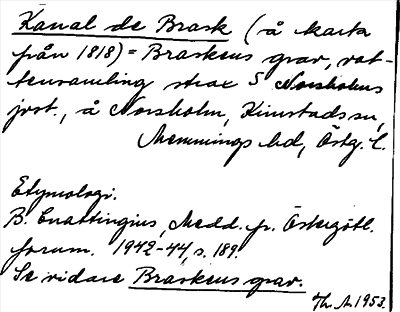 Kanal de Brask (å karta
från 1818) = Braskens grav, vat-
tensamling strax S Norsholms
jvst., å Norsholm, Kimstads sn,
Memmings hd, Östg. l.
Etymologi.
B. Cnattingius, Medd. fr. Östergötl.
fornm. 1942-44, s. 189.
Se vidare Braskens grav.
Th. A. 1953.